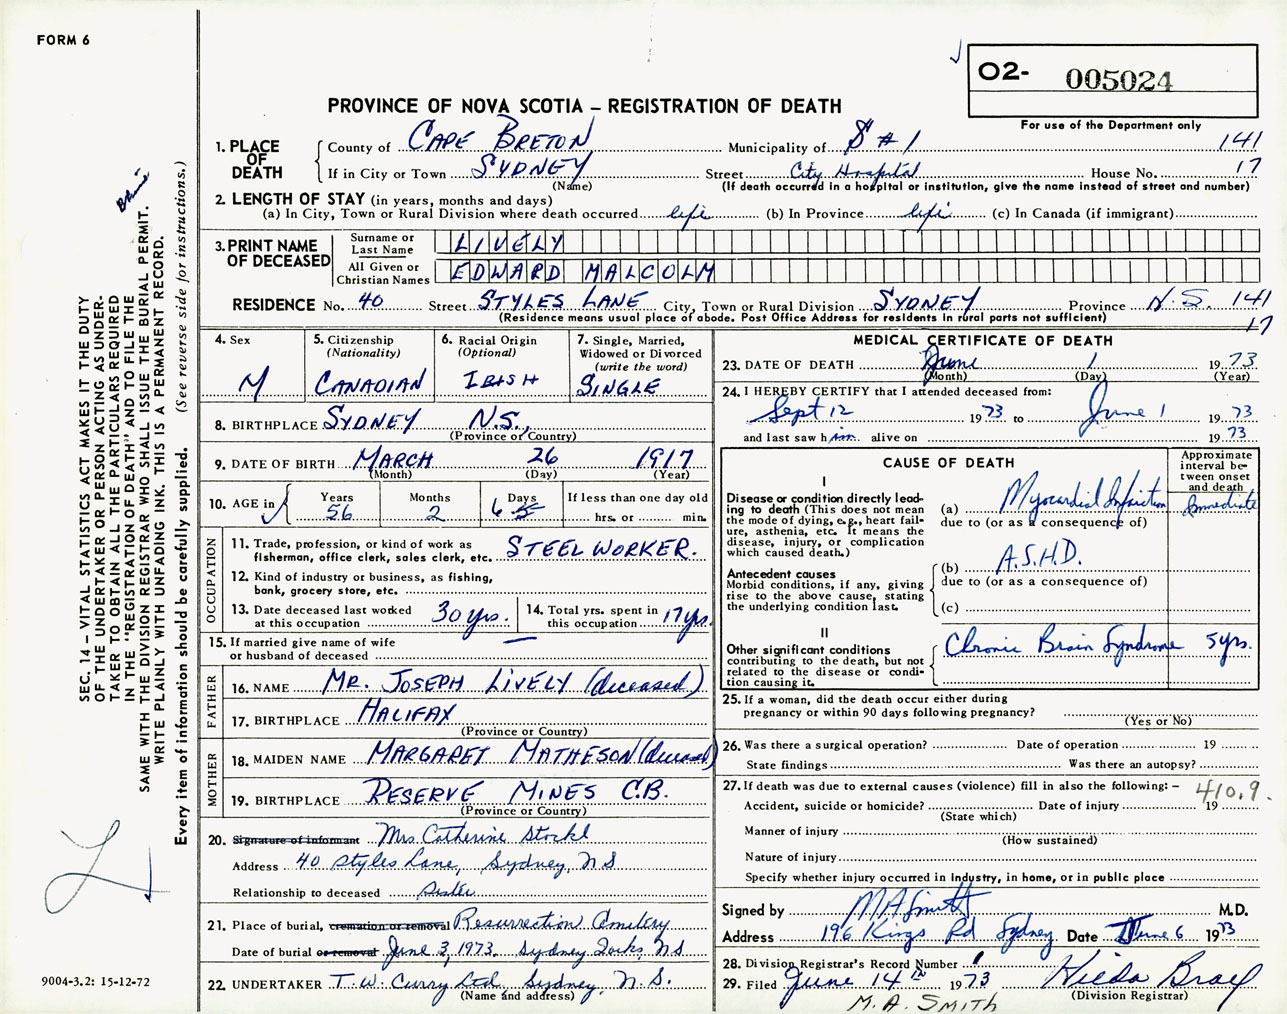 FORM 6
O2- 005024
For use of the Department only
PROVINCE OF NOVA SCOTIA – REGISTRATION OF DEATH
1. PLACE OF DEATH
County of CAPE BRETON Municipality of S #1 141
If in City or Town SYDNEY Street City Hospital House No. 17
(Name) (If death occurred in a hospital or institution, give the name instead of street and number)
2. LENGTH OF STAY (in years, months and days)
(a) In City, Town or Rural Division where death occurred life (b) In Province life (c) In Canada (if immigrant)
3. PRINT NAME OF DECEASED
Surname or Last Name LIVELY
All Given or Christian Names EDWARD MALCOLM
RESIDENCE No. 40 Street STYLES LANE City, Town or Rural Division SYDNEY Province N.S. 141
(Residence means usual place of abode. Post Office Address for residents in rural parts not sufficient) 17
4. Sex M
5. Citizenship (Nationality) CANADIAN
6. Racial Origin (Optional) IRISH
7. Single, Married, Widowed or Divorced (write the word) SINGLE
8. BIRTHPLACE SYDNEY N.S.,
(Province or Country)
9. DATE OF BIRTH MARCH 26 1917
(Month) (Day) (Year)
10. AGE in Years 56 Months 2 Days 6 5 If less than one day old hrs. or min.
OCCUPATION
11. Trade, profession, or kind of work as fisherman, office clerk, sales clerk, etc. STEEL WORKER.
12. Kind of industry or business, as fishing, bank, grocery store, etc.
13. Date deceased last worked at this occupation 30 yrs.
14. Total yrs. spent in this occupation 17 yrs.
15. If married give name of wife or husband of deceased —
FATHER
16. NAME MR. JOSEPH LIVELY (deceased)
17. BIRTHPLACE HALIFAX
(Province or Country)
MOTHER
18. MAIDEN NAME MARGARET MATHESON (deceased)
19. BIRTHPLACE RESERVE MINES C.B.
(Province or Country)
20. Signature of informant Mrs Catherine Stockl
Address 40 Styles Lane, Sydney, NS
Relationship to deceased Sister
21. Place of burial, cremation or removal Resurrection Cemetery
Date of burial or removal June 3, 1973. Sydney Forks, NS
22. UNDERTAKER T.W. Curry Ltd, Sydney, N.S.
(Name and address)
MEDICAL CERTIFICATE OF DEATH
23. DATE OF DEATH June 1 1973
(Month) (Day) (Year)
24. I HEREBY CERTIFY that I attended deceased from:
Sept 12 1973 to June 1 1973
and last saw him alive on 1973
CAUSE OF DEATH
Approximate interval between onset and death
I
Disease or condition directly leading to death (This does not mean the mode of dying, e.g., heart failure, asthenia, etc. It means the disease, injury, or complication which caused death.)
(a) Myocardial Infarction Immediate
due to (or as a consequence of)
Antecedent causes
Morbid conditions, if any, giving rise to the above cause, stating the underlying condition last.
(b) A.S.H.D.
due to (or as a consequence of)
(c)
II
Other significant conditions contributing to the death, but not related to the disease or condition causing it.
Chronic Brain Syndrome 5 yrs.
25. If a woman, did the death occur either during pregnancy or within 90 days following pregnancy?
(Yes or No)
26. Was there a surgical operation? Date of operation 19
State findings Was there an autopsy?
27. If death was due to external causes (violence) fill in also the following: – 410.9.
Accident, suicide or homicide? Date of injury 19
(State which)
Manner of injury
(How sustained)
Nature of injury
Specify whether injury occurred in industry, in home, or in public place
Signed by MA Smith M.D.
Address 196 Kings Rd Sydney Date June 6 1973
28. Division Registrar's Record Number
29. Filed June 14th 1973 Hilda Bray
(Division Registrar)
M.A. SMITH
SEC. 14 – VITAL STATISTICS ACT MAKES IT THE DUTY
OF THE UNDERTAKER OR PERSON ACTING AS UNDER-
TAKER TO OBTAIN ALL THE PARTICULARS REQUIRED
IN THE "REGISTRATION OF DEATH" AND TO FILE THE
SAME WITH THE DIVISION REGISTRAR WHO SHALL ISSUE THE BURIAL PERMIT.
WRITE PLAINLY WITH UNFADING INK. THIS IS A PERMANENT RECORD.
Every item of information should be carefully supplied. (See reverse side for instructions.)
9004-3.2: 15-12-72